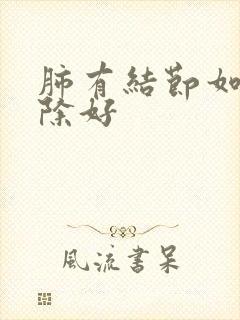 肺有結節如
除好
風流書呆